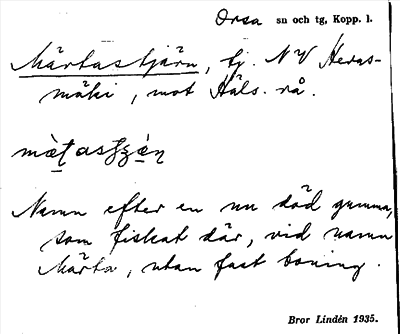 Orsa sn och tg, Kopp. l.
Märtastjärn, tj. NV Heras-
mäki, mot Häls. rå.
Namn efter en nu död gumma,
som fiskat där, vid namn
Märta, utan fast boning.
Bror Lindén 1935.